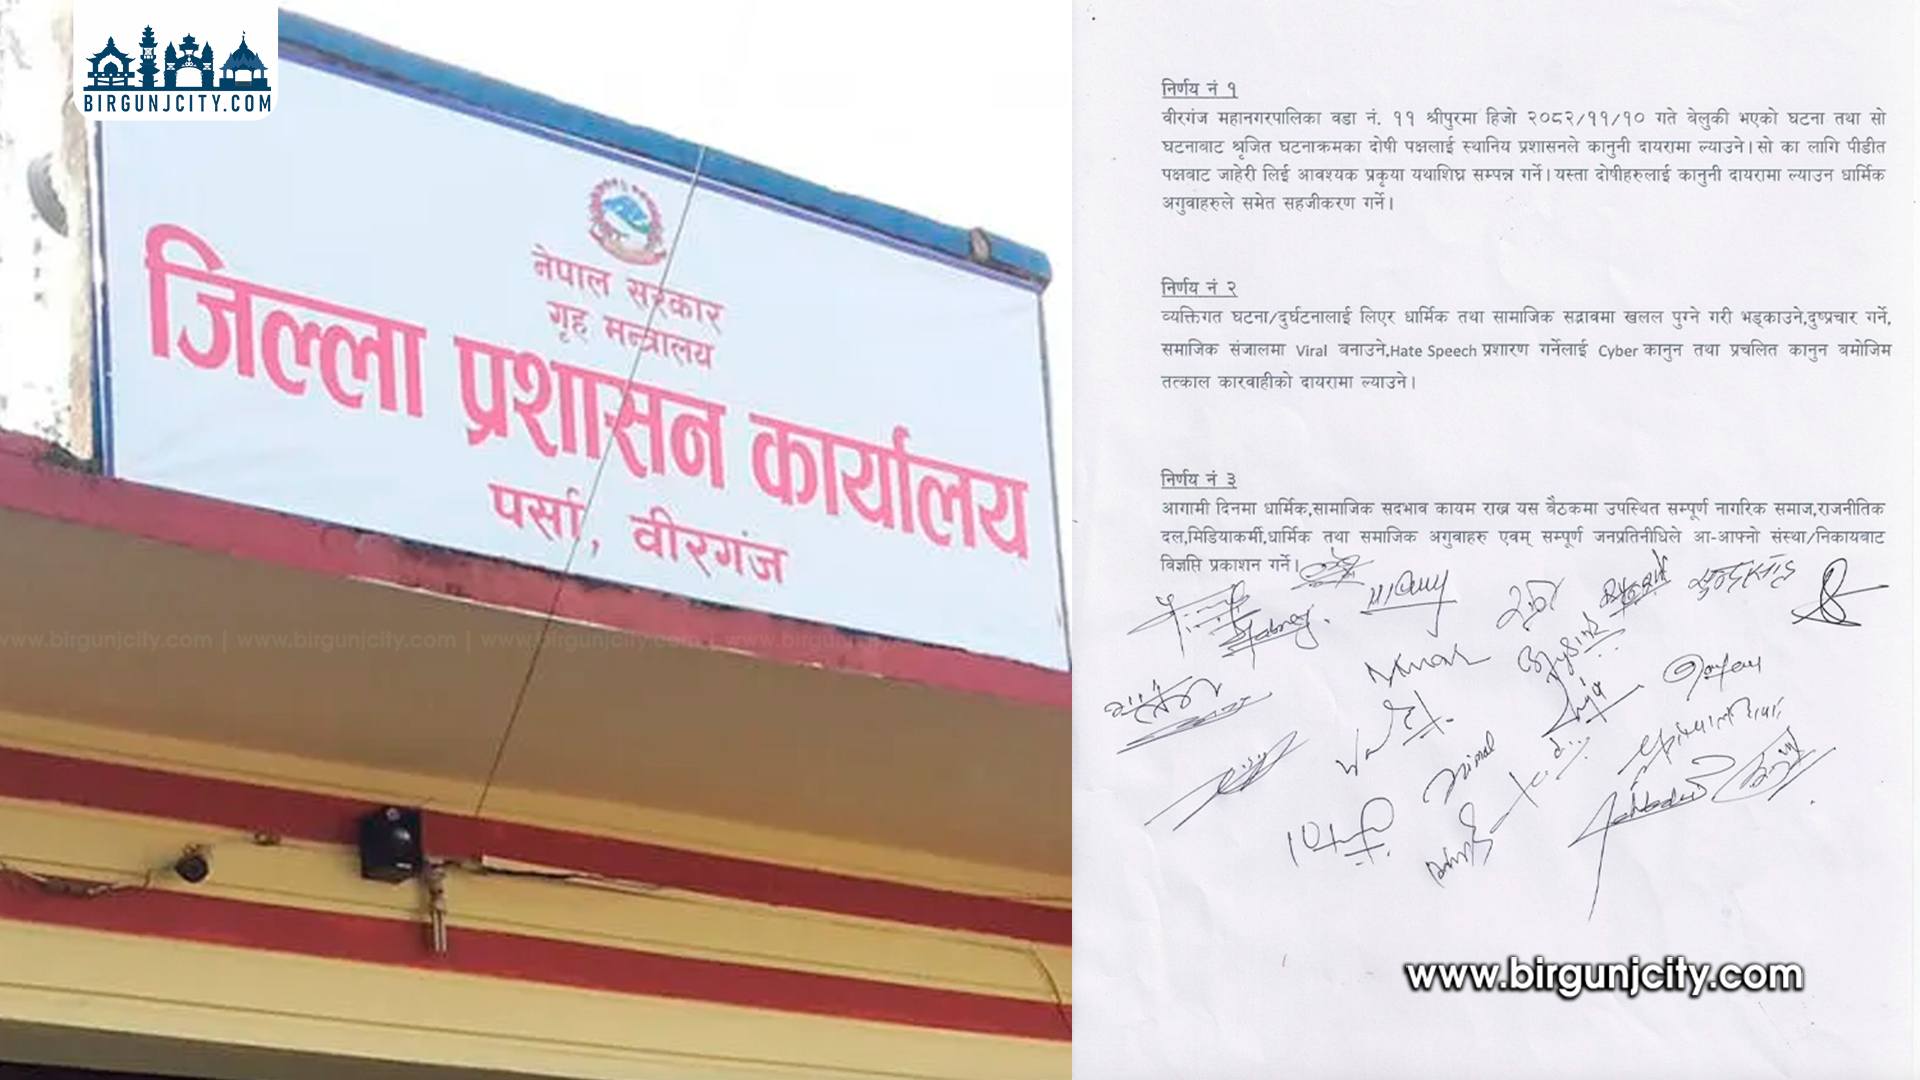 BIRGUNJCITY.COM
नेपाल सरकार
गृह मन्त्रालय
जिल्ला प्रशासन कार्यालय
पर्सा, वीरगंज
www.birgunjcity.com | www.birgunjcity.com | www.birgunjcity.com | www.birgunjcity.com
निर्णय नं १
वीरगंज महानगरपालिका वडा नं. ११ श्रीपुरमा हिजो २०८२/११/१० गते बेलुकी भएको घटना तथा सो
घटनाबाट श्रृजित घटनाक्रमका दोषी पक्षलाई स्थानिय प्रशासनले कानुनी दायरामा ल्याउने। सो का लागि पीडीत
पक्षबाट जाहेरी लिई आवश्यक प्रकृया यथाशिघ्र सम्पन्न गर्ने। यस्ता दोषीहरुलाई कानुनी दायरामा ल्याउन धार्मिक
अगुवाहरुले समेत सहजीकरण गर्ने।
निर्णय नं २
व्यक्तिगत घटना/दुर्घटनालाई लिएर धार्मिक तथा सामाजिक सद्भावमा खलल पुग्ने गरी भड्काउने,दुष्प्रचार गर्ने,
समाजिक संजालमा Viral बनाउने,Hate Speech प्रशारण गर्नेलाई Cyber कानुन तथा प्रचलित कानुन बमोजिम
तत्काल कारवाहीको दायरामा ल्याउने।
निर्णय नं ३
आगामी दिनमा धार्मिक,सामाजिक सदभाव कायम राख्न यस बैठकमा उपस्थित सम्पूर्ण नागरिक समाज,राजनीतिक
दल,मिडियाकर्मी,धार्मिक तथा समाजिक अगुवाहरु एवम् सम्पूर्ण जनप्रतिनीधिले आ-आफ्नो संस्था/निकायबाट
विज्ञप्ति प्रकाशन गर्ने।
www.birgunjcity.com